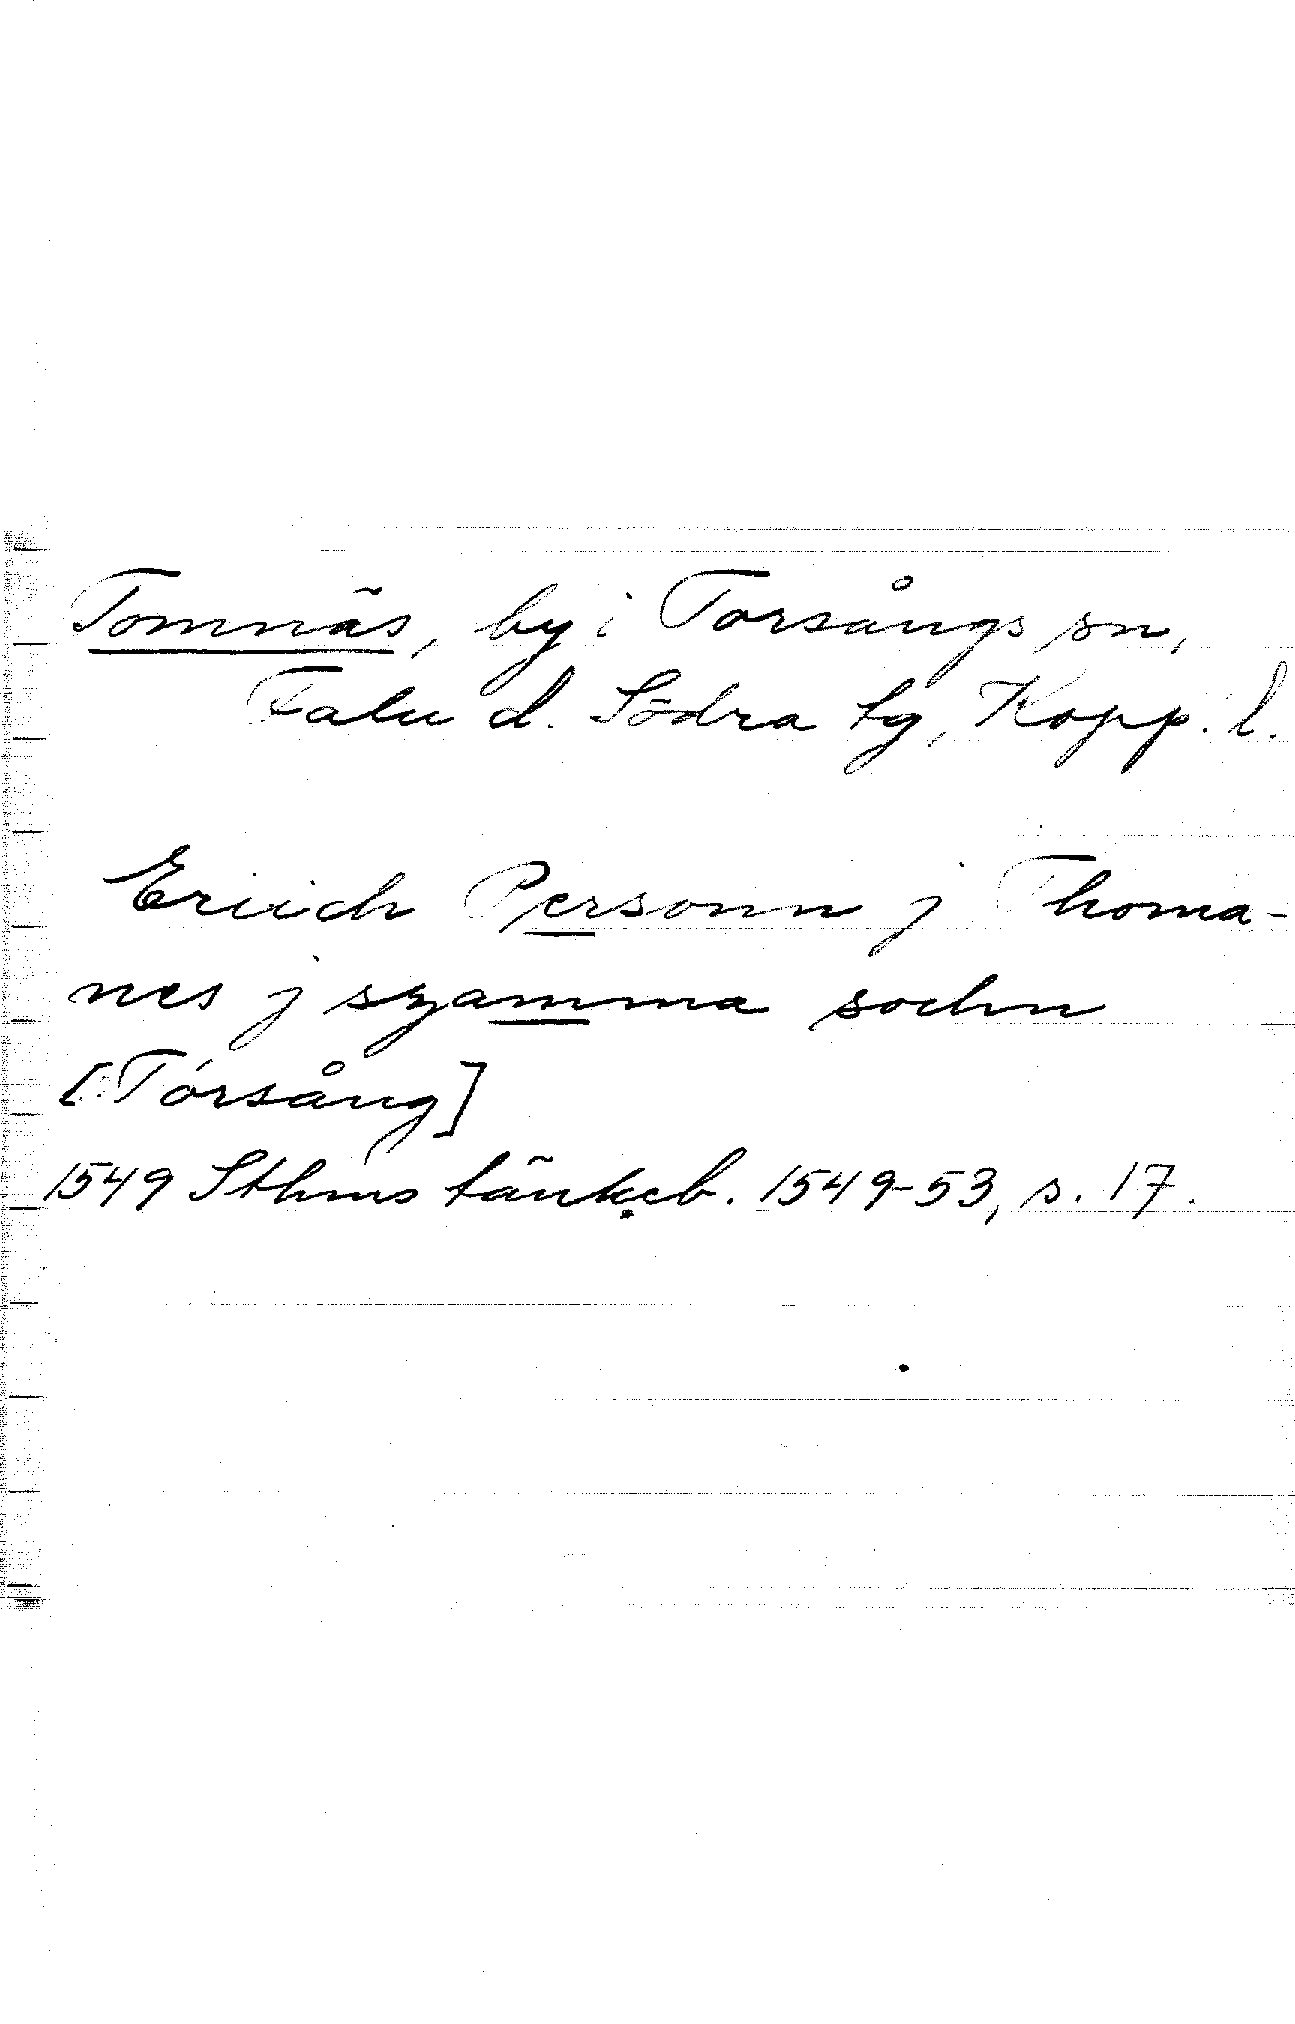 Tomnäs, by i Torsångs sn,
Falu d. Södra tg, Kopp. l.
Eriich Personn j Thoma-
nes j szamma sochn
[Torsång]
1549 Sthms tänkeb. 1549-53, s. 17.